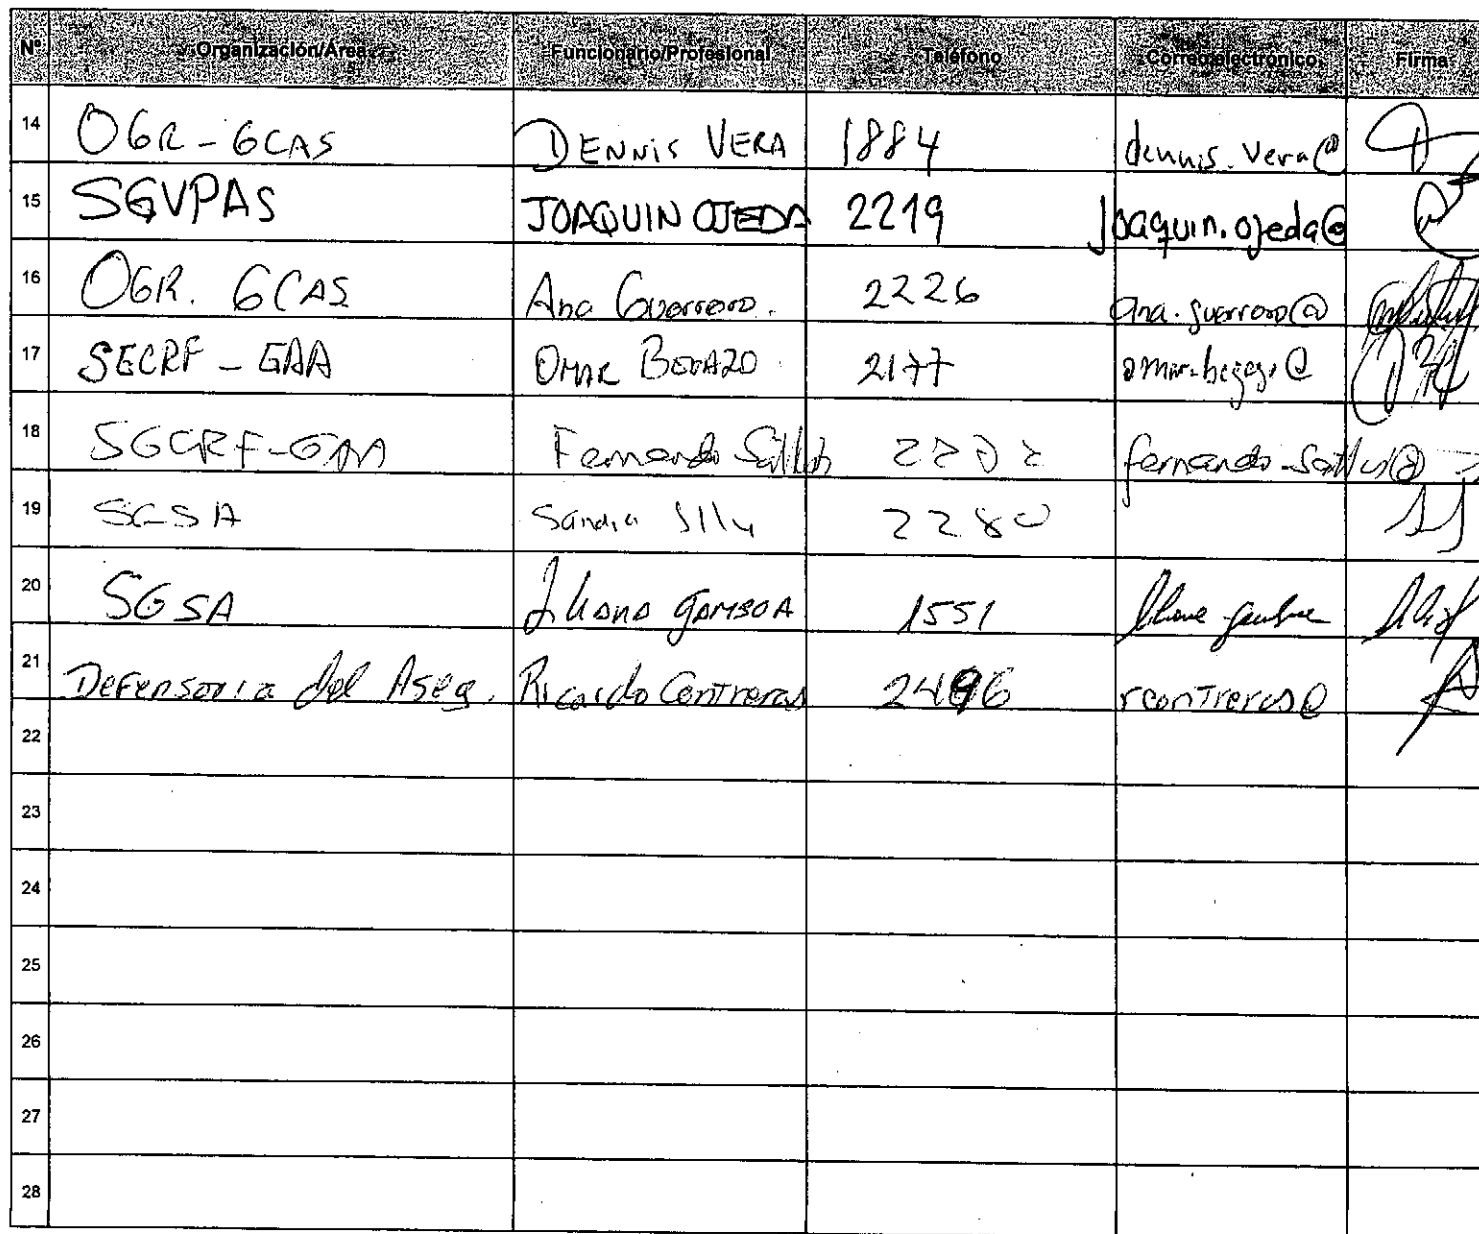 Nº Organización/Área Funcionario/Profesional Teléfono Correo electrónico Firma
14 OGR - GCAS DENNIS VERA 1884 dennis.vera@
15 SGVPAS JOAQUIN OJEDA 2219 joaquin.ojeda@
16 OGR. GCAS Ana Guerrero. 2226 ana.guerrero@
17 SECRF - GAA OMAR 2177
18 SGCRF-GAA Fernando 2202 fernando
19 SGSA Sandra 2280
20 SGSA GAMBOA 1551
21 Defensoria del Aseg. Ricardo Contreras 2496 rcontreras@
22
23
24
25
26
27
28